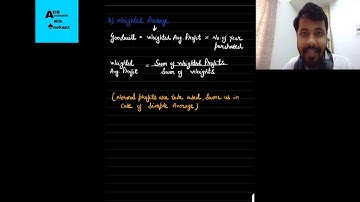 Ace
Accounts
With
Anikant
b) Weighted Average
Goodwill = Weighted Avg Profit × No of year
purchased
Weighted
Avg Profit = Sum of Weighted Profits
Sum of Weights
(Normal profits are to be used, Same as in
case of Simple Average)